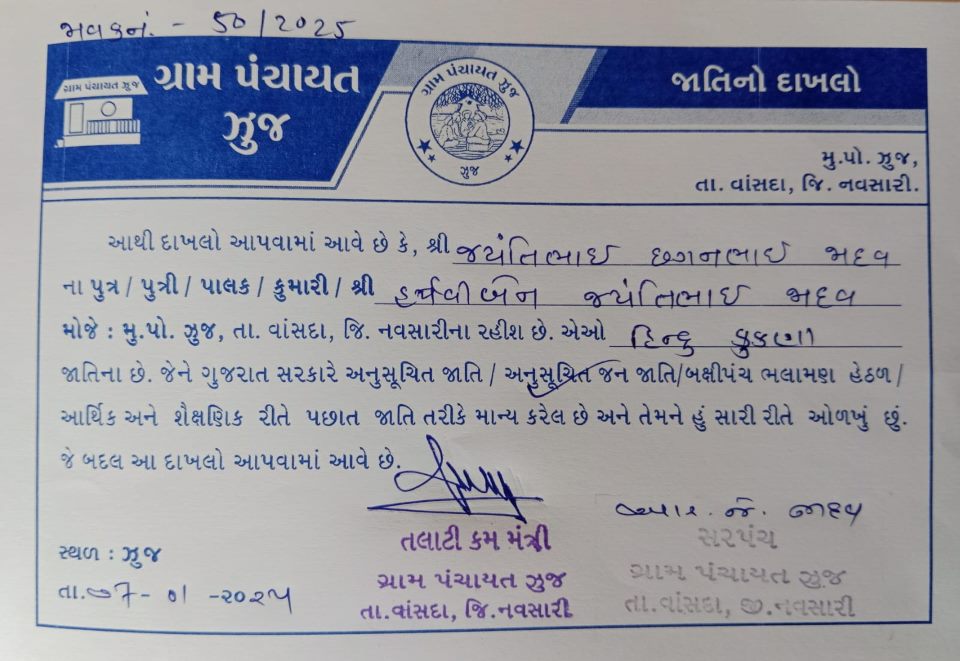 જાવક નં. - 50/2025
ગ્રામ પંચાયત ઝુજ
ગ્રામ પંચાયત
ઝુજ
ગ્રામ પંચાયત ઝુજ
ઝુજ
જાતિનો દાખલો
મુ.પો. ઝુજ,
તા. વાંસદા, જિ. નવસારી.
આથી દાખલો આપવામાં આવે છે કે, શ્રી જયંતિભાઈ છગનભાઈ જાદવ
ના પુત્ર / પુત્રી / પાલક / કુમારી / શ્રી જયંતિભાઈ જાદવ
મોજે : મુ.પો. ઝુજ, તા. વાંસદા, જિ. નવસારીના રહીશ છે. એઓ હિન્દુ કુકણા
જાતિના છે. જેને ગુજરાત સરકારે અનુસૂચિત જાતિ / અનુસૂચિત જન જાતિ/બક્ષીપંચ ભલામણ હેઠળ /
આર્થિક અને શૈક્ષણિક રીતે પછાત જાતિ તરીકે માન્ય કરેલ છે અને તેમને હું સારી રીતે ઓળખું છું.
જે બદલ આ દાખલો આપવામાં આવે છે.
સ્થળ : ઝુજ
તા. ૦7-01-૨૦૨૫
તલાટી કમ મંત્રી
ગ્રામ પંચાયત ઝુજ
તા.વાંસદા, જિ.નવસારી.
આર. જે. જાદવ
સરપંચ
ગ્રામ પંચાયત ઝુજ
તા.વાંસદા, જી.નવસારી